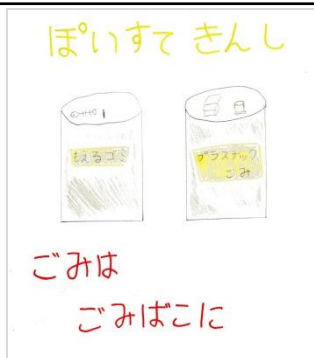 ぽいすて きんし
もえるゴミ
プラスチック
ごみ
ごみは
ごみばこに